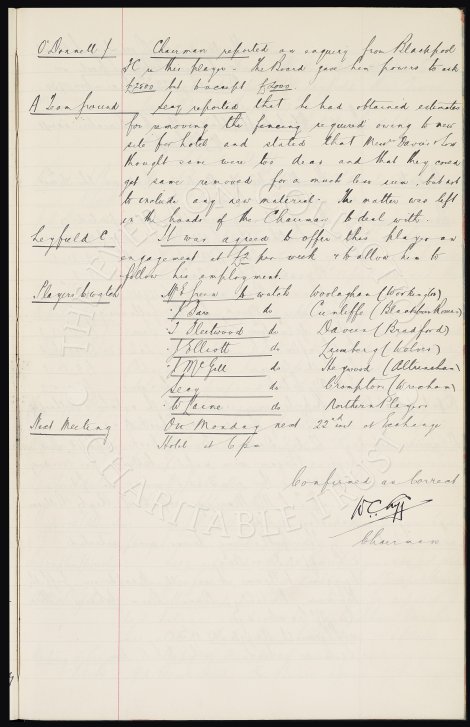 O'Donnell J. Chairman reported an enquiry from Blackpool
FC re this player. The Board gave him powers to ask
£2500 but to accept £2000
A Team ground Secy reported that he had obtained estimates
for removing the fencing required owing to new
site for hotel and stated that Messrs Davis & Low
thought same were too dear and that they could
get same removed for a much less sum, but not
to include any new material. The matter was left
in the hands of the Chairman to deal with.
Leyfield C. It was agreed to offer this player an
engagement at £2 per week & to allow him to
follow his employment.
Players to watch Mr E Green to watch Woolaghan (Workington)
" J do Cunliffe (Blackburn Rovers)
" T Fleetwood do Davies (Bradford)
" J Elliott do (Wolves)
" J McGill do Heywood (Altrincham)
Secy do Crompton (Wrexham)
" W do Northern Players
Next Meeting On Monday next 22nd inst at Exchange
Hotel at 6 pm
Confirmed as Correct
W.C. Cuff
Chairman
CHARITABLE TRUST